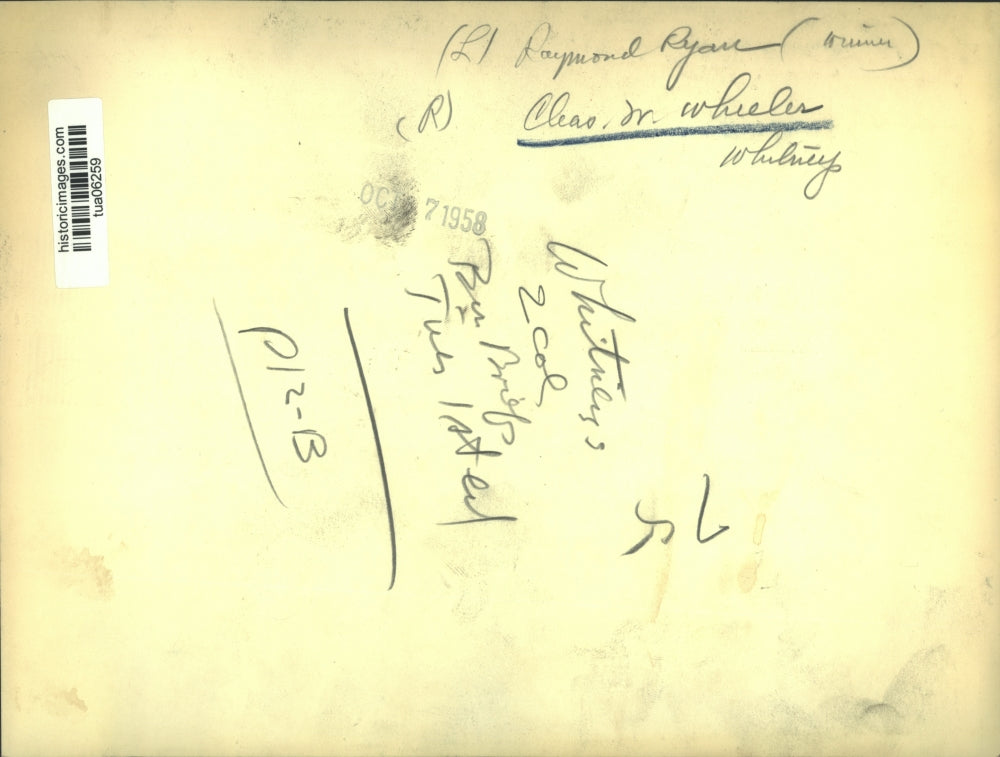 (L) Raymond Ryan (winner)
(R) Chas. W. Wheeler
Whitneys
historicimages.com
tua06259
OC 7 1958
Whitneys
2 col
Biz Briefs
Tues 1st ed
P12-B